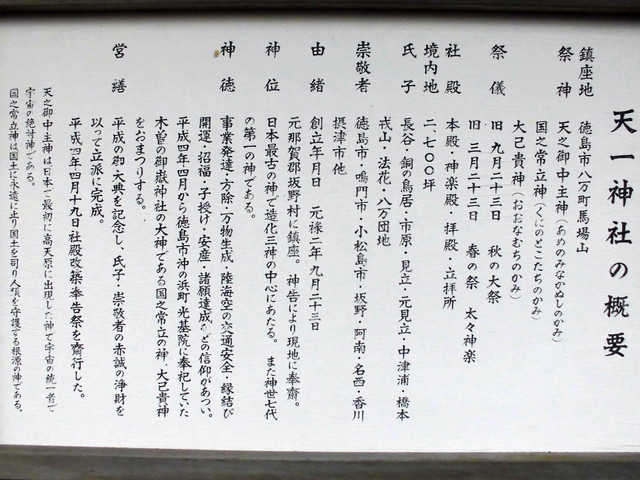 天一神社の概要
鎮座地　徳島市八万町馬場山
祭神　天之御中主神（あめのみなかぬしのかみ）
国之常立神（くにのとこたちのかみ）
大己貴神（おおなむちのかみ）
祭儀　旧九月二十三日　秋の大祭
旧三月二十三日　春の祭　太々神楽
社殿　本殿・神楽殿・拝殿・立拝所
境内地　二、七〇〇坪
氏子　長谷・銅の鳥居・市原・見立・元見立・中津浦・橋本
戎山・法花・八万団地
崇敬者　徳島市・鳴門市・小松島市・坂野・阿南・名西・香川
摂津市他
由緒　創立年月日　元禄二年九月二十三日
元那賀郡坂野村に鎮座。神告により現地に奉齋。
神位　日本最古の神で造化三神の中心にあたる。また神世七代
の第一の神である。
神徳　事業発達・方除・万物生成・陸海空の交通安全・縁結び
開運・招福・子授け・安産・諸願達成などの信仰があつい。
平成四年四月から徳島市沖の浜町光基院に奉祀していた
木曽の御嶽神社の大神である国之常立の神、大己貴神
をおまつりする。
営繕　平成の御大典を記念し、氏子・崇敬者の赤誠の浄財を
以って立派に完成。
平成四年四月十九日社殿改築奉告祭を齋行した。
天之御中主神は日本で最初に高天原に出現した神で宇宙の統一者で
宇宙の絶対神である。
国之常立神は国土に永遠に止り国土を司り人草を守護する根源の神である。